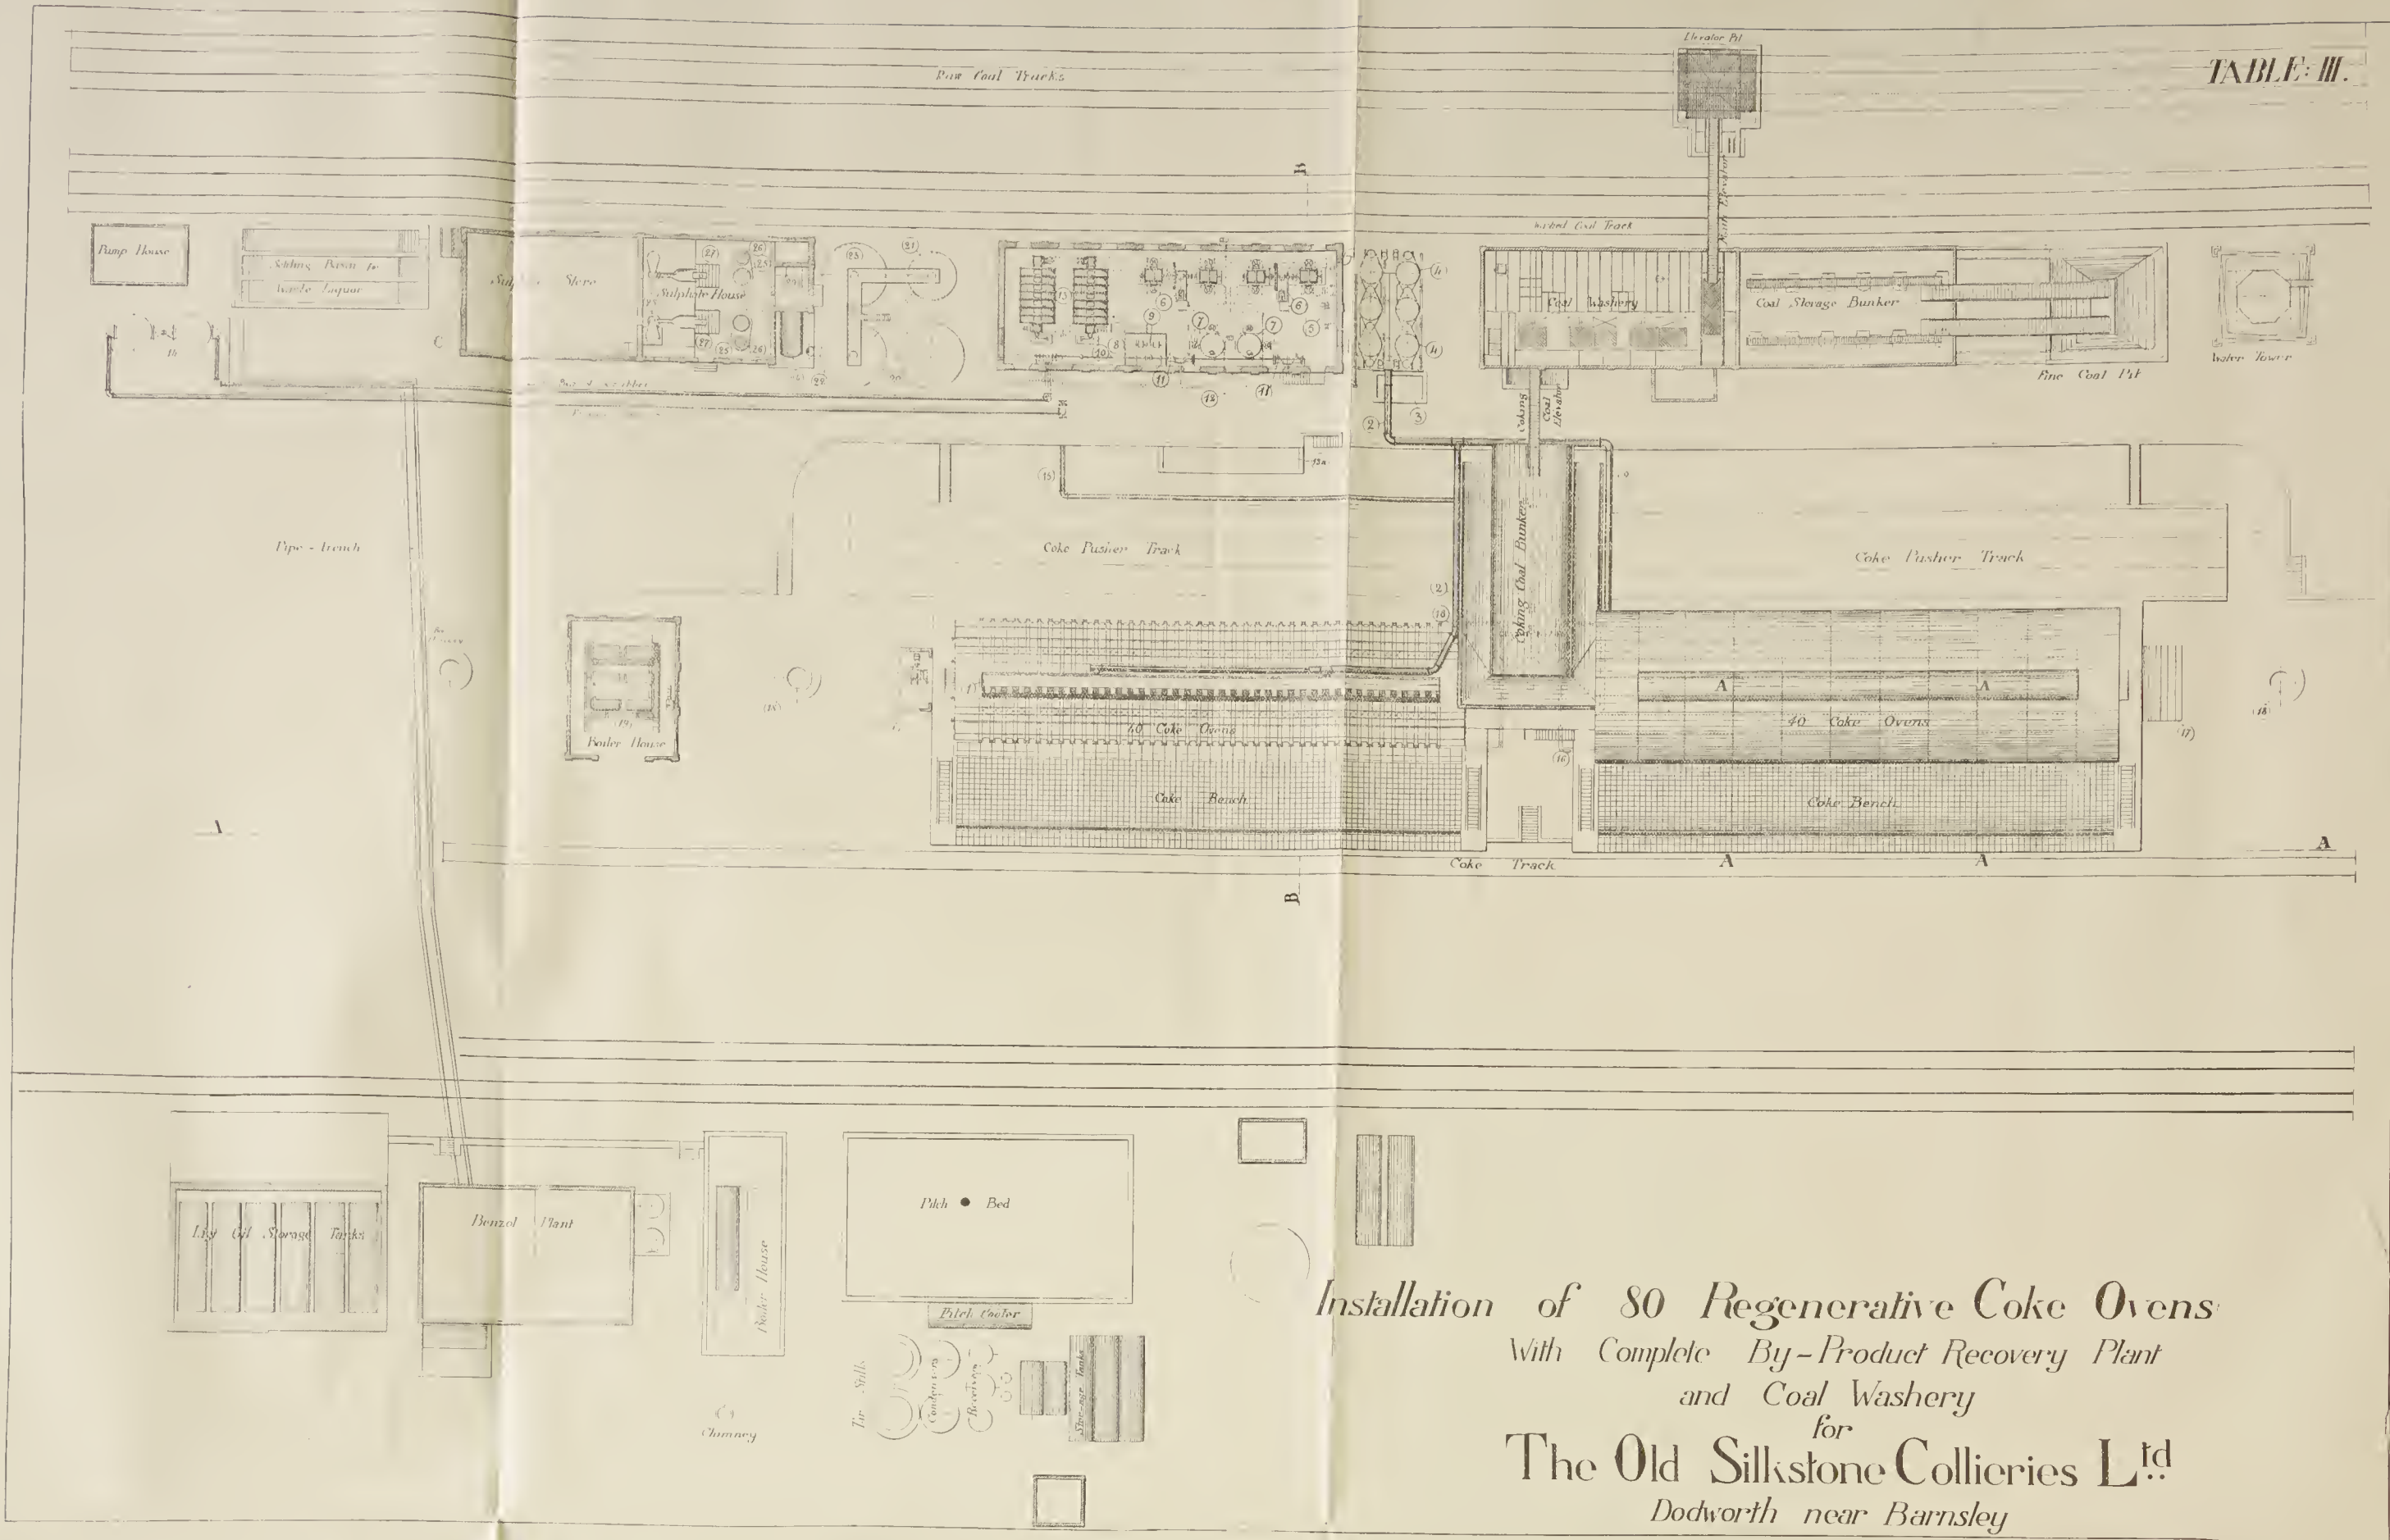 TABLE: III.
Elevator Pit
Raw Coal Tracks
Washed Coal Track
Elevator
B
Pump House
Settling Basin for
Waste Liquor
Store
Sulphate House
Coal Washery
Coal Storage Bunker
Fine Coal Pit
Water Tower
C
14
27
26
25
23
21
27
25
26
22
20
13
6
6
9
7
7
5
8
10
11
12
11
4
4
2
3
Coking Coal Elevator
15
13a
Pipe-trench
Coke Pusher Track
Coking Coal Bunker
Coke Pusher Track
(2)
(18)
(19)
Boiler House
40 Coke Ovens
A
A
40 Coke Ovens
(18)
(17)
(16)
Coke Bench
Coke Bench
A
Coke Track
A
A
A
B
Oil Storage Tanks
Benzol Plant
Boiler House
Pitch Bed
Pitch Cooler
Tar Stills
Condensers
Receivers
Storage Tanks
Chimney
Installation of 80 Regenerative Coke Ovens
With Complete By-Product Recovery Plant
and Coal Washery
for
The Old Silkstone Collieries Ltd
Dodworth near Barnsley